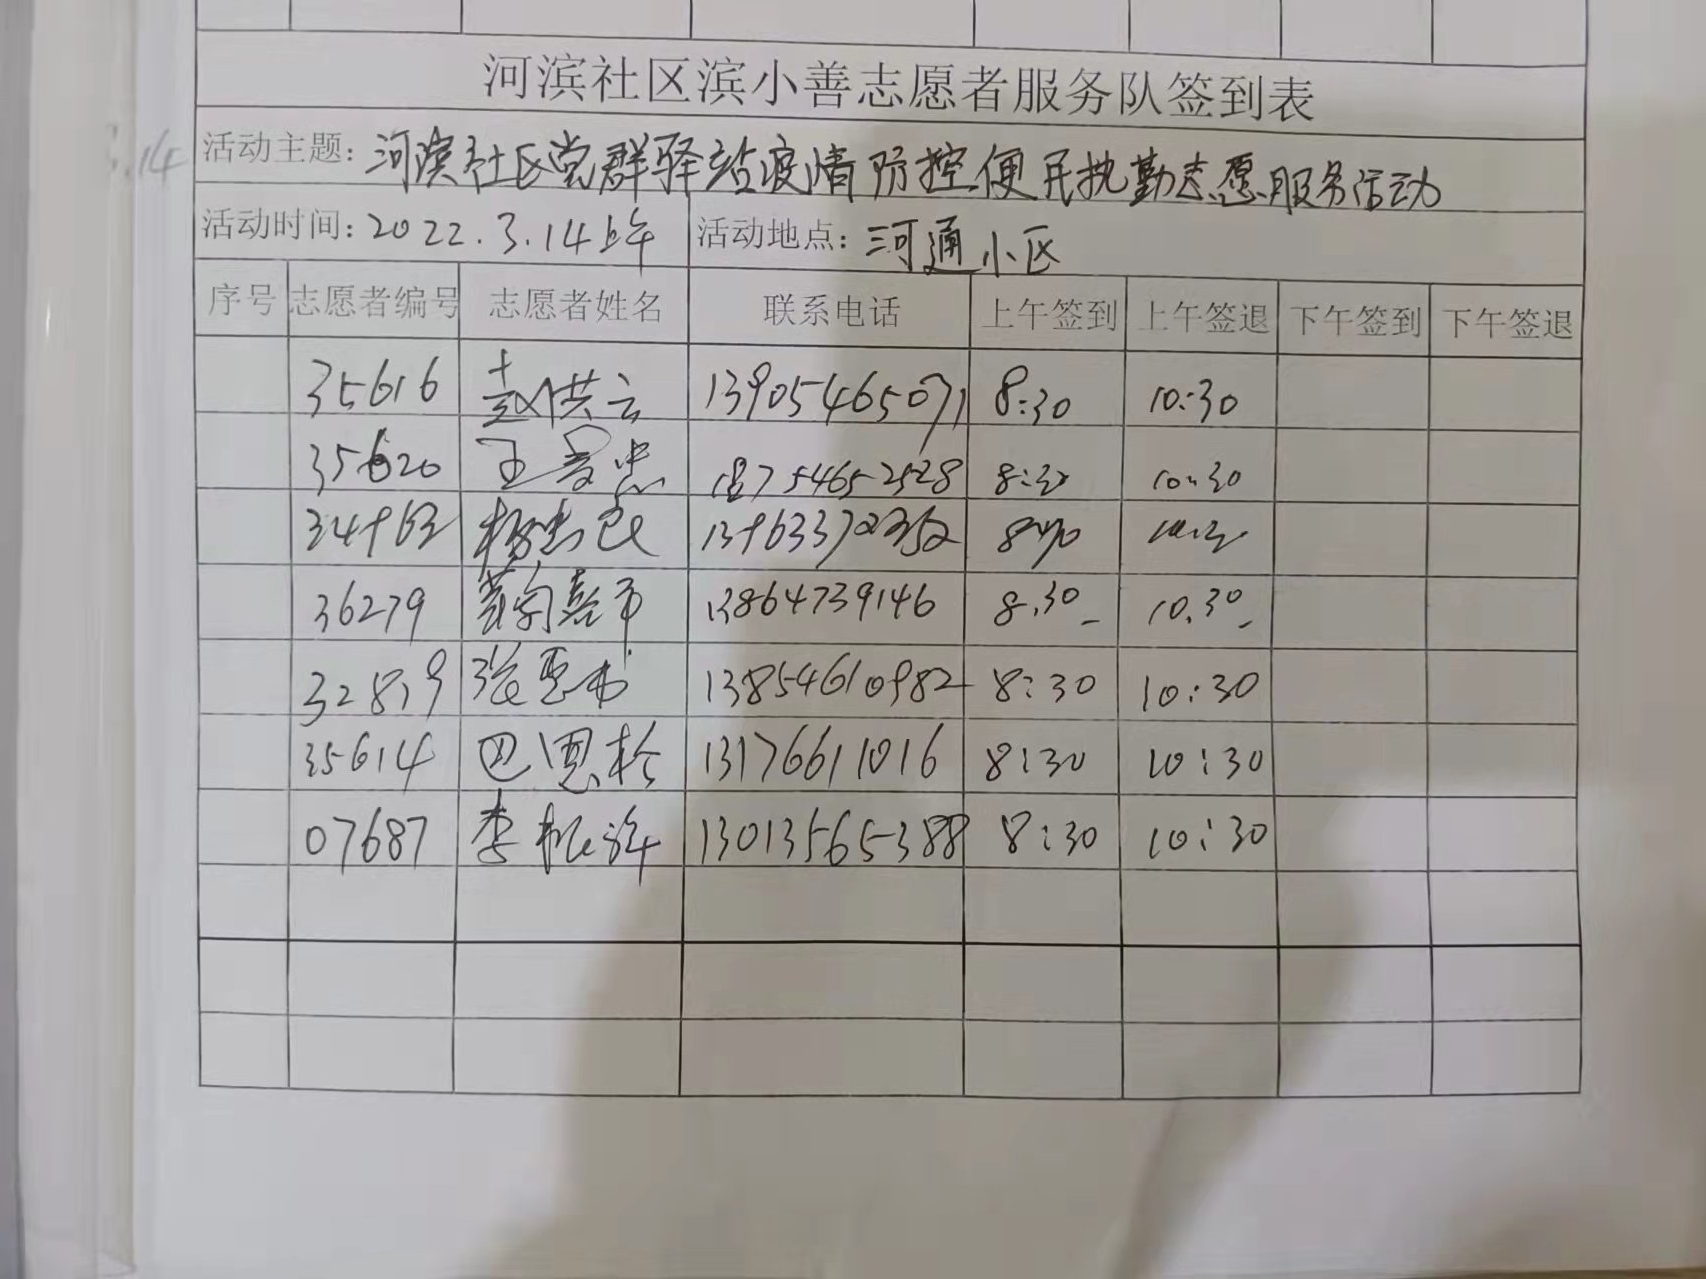 河滨社区滨小善志愿者服务队签到表
3.14
活动主题: 河滨社区党群驿站疫情防控便民执勤志愿服务活动
活动时间: 2022.3.14上午 活动地点: 河通小区
序号 志愿者编号 志愿者姓名 联系电话 上午签到 上午签退 下午签到 下午签退
35616 赵洪云 13905465071 8:30 10:30
35620 王 18754652528 8:30 10:30
杨 10:30
36279 13864739146 8.30 10.30
32819 张 13854610982 8:30 10:30
35614 巴恩 13176611016 8:30 10:30
07687 李振 13013565388 8:30 10:30